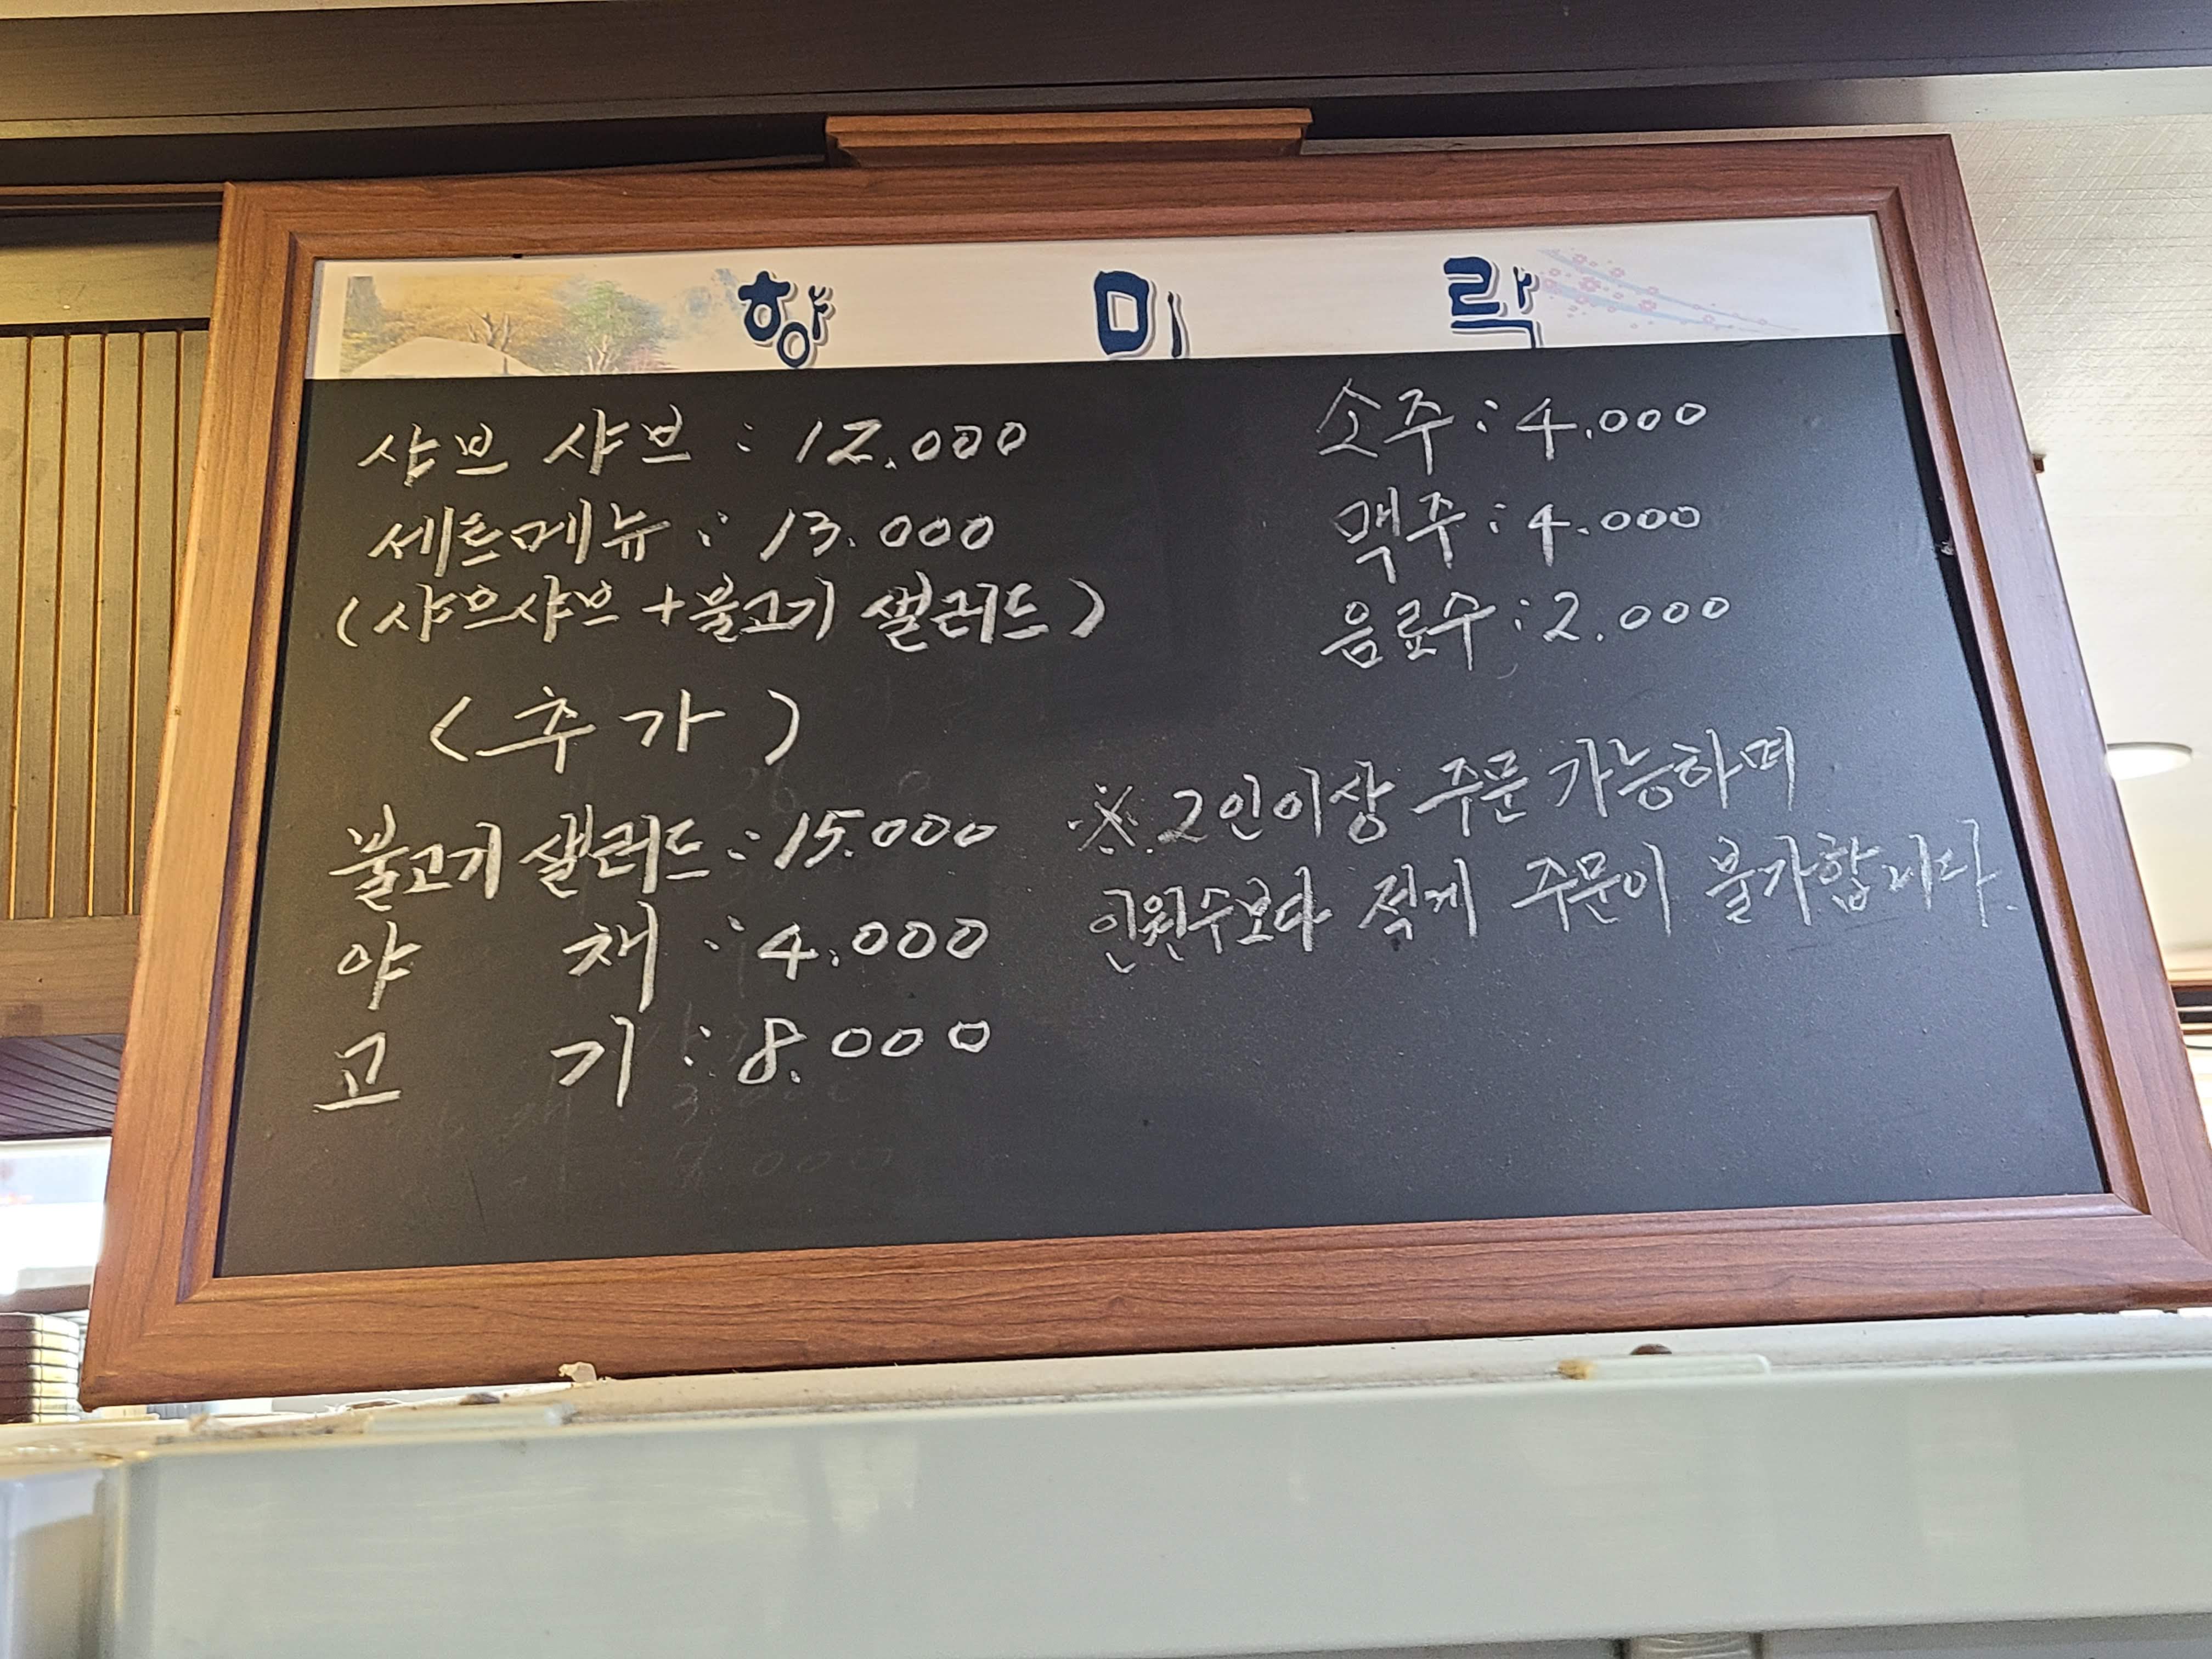 향 미 락
샤브 샤브 : 12.000
세트메뉴 : 13.000
(샤브샤브 + 불고기 샐러드)
(추가)
불고기 샐러드 : 15.000
야 채 : 4.000
고 기 : 8.000
소주 : 4.000
맥주 : 4.000
음료수 : 2.000
※. 2인이상 주문 가능하며
인원수보다 적게 주문이 불가합니다.